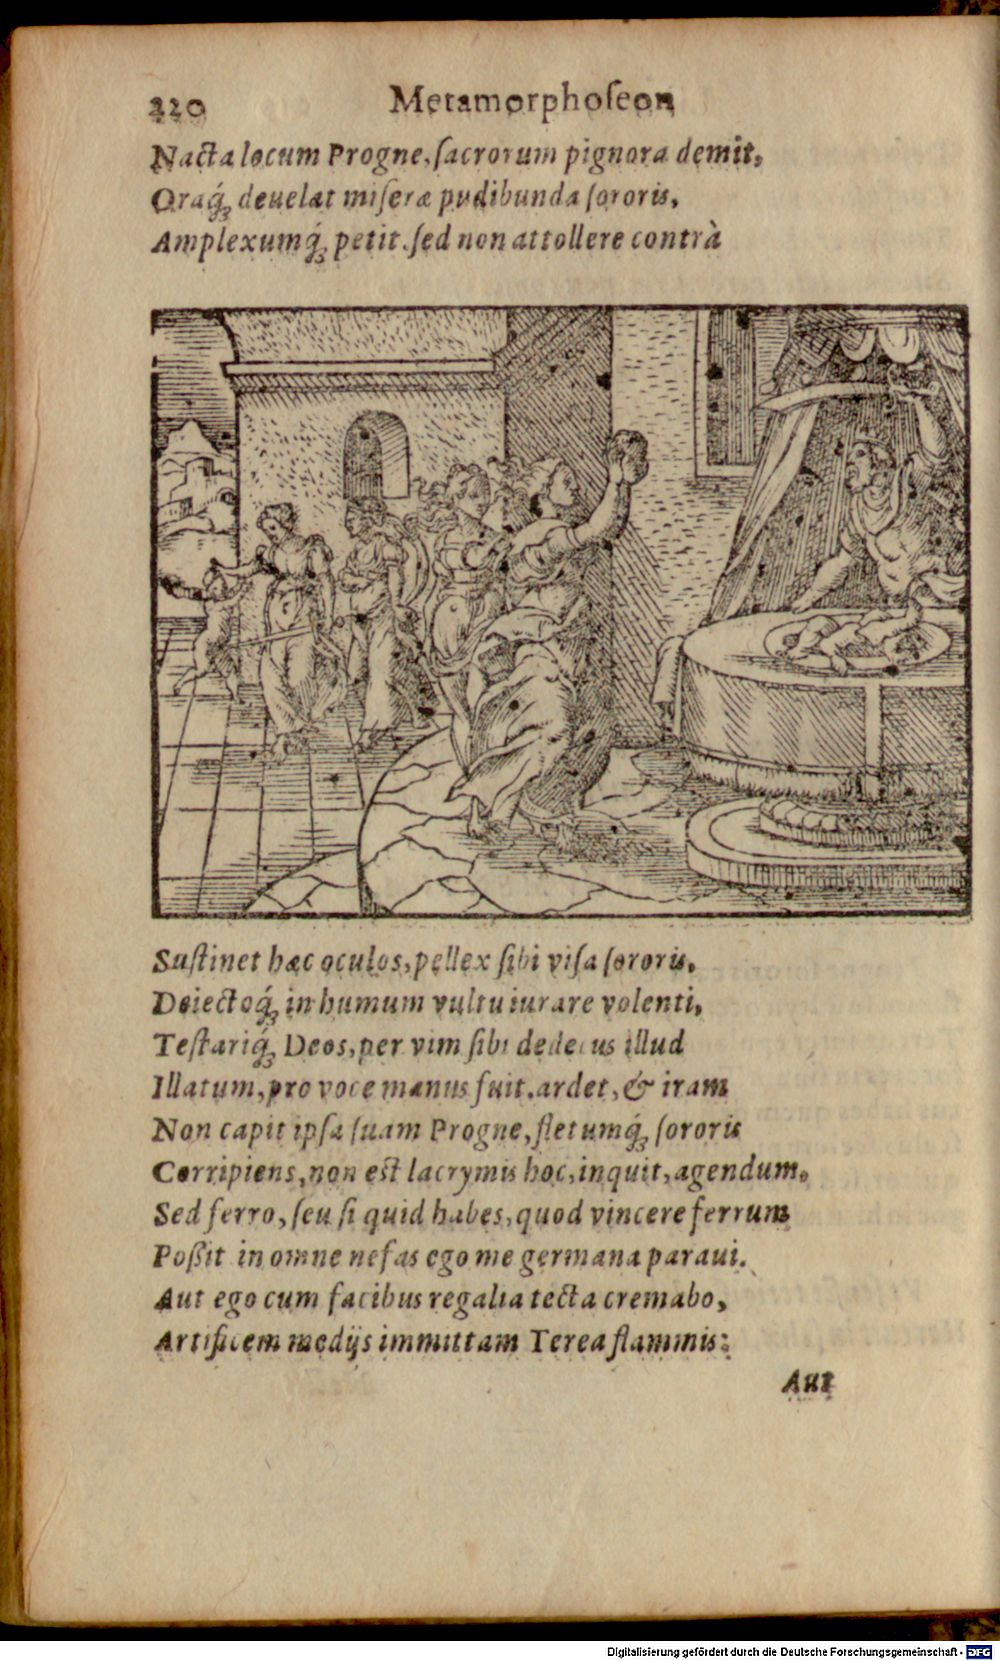 220 Metamorphoſeon
Nacta locum Progne, ſacrorum pignora demit,
Oraq́ꝫ deuelat miſeræ pudibunda ſororis,
Amplexumq́ꝫ petit. ſed non attollere contrà
Suſtinet hæc oculos, pellex ſibi viſa ſororis,
Deiectoq́ꝫ in humum vultu iurare volenti,
Teſtariq́ꝫ Deos, per vim ſibi dedecus illud
Illatum, pro voce manus fuit. ardet, & iram
Non capit ipſa ſuam Progne, fletumq́ꝫ ſororis
Corripiens, non eſt lacrymis hoc, inquit, agendum,
Sed ferro, ſeu ſi quid habes, quod vincere ferrum
Poßit in omne nefas ego me germana paraui.
Aut ego cum facibus regalia tecta cremabo,
Artificem medijs immittam Terea flammis:
Aut
Digitalisierung gefördert durch die Deutsche Forschungsgemeinschaft - DFG